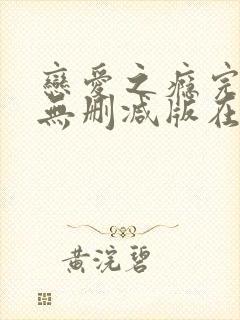 戀愛之癮完
無刪減版在
黃浣碧